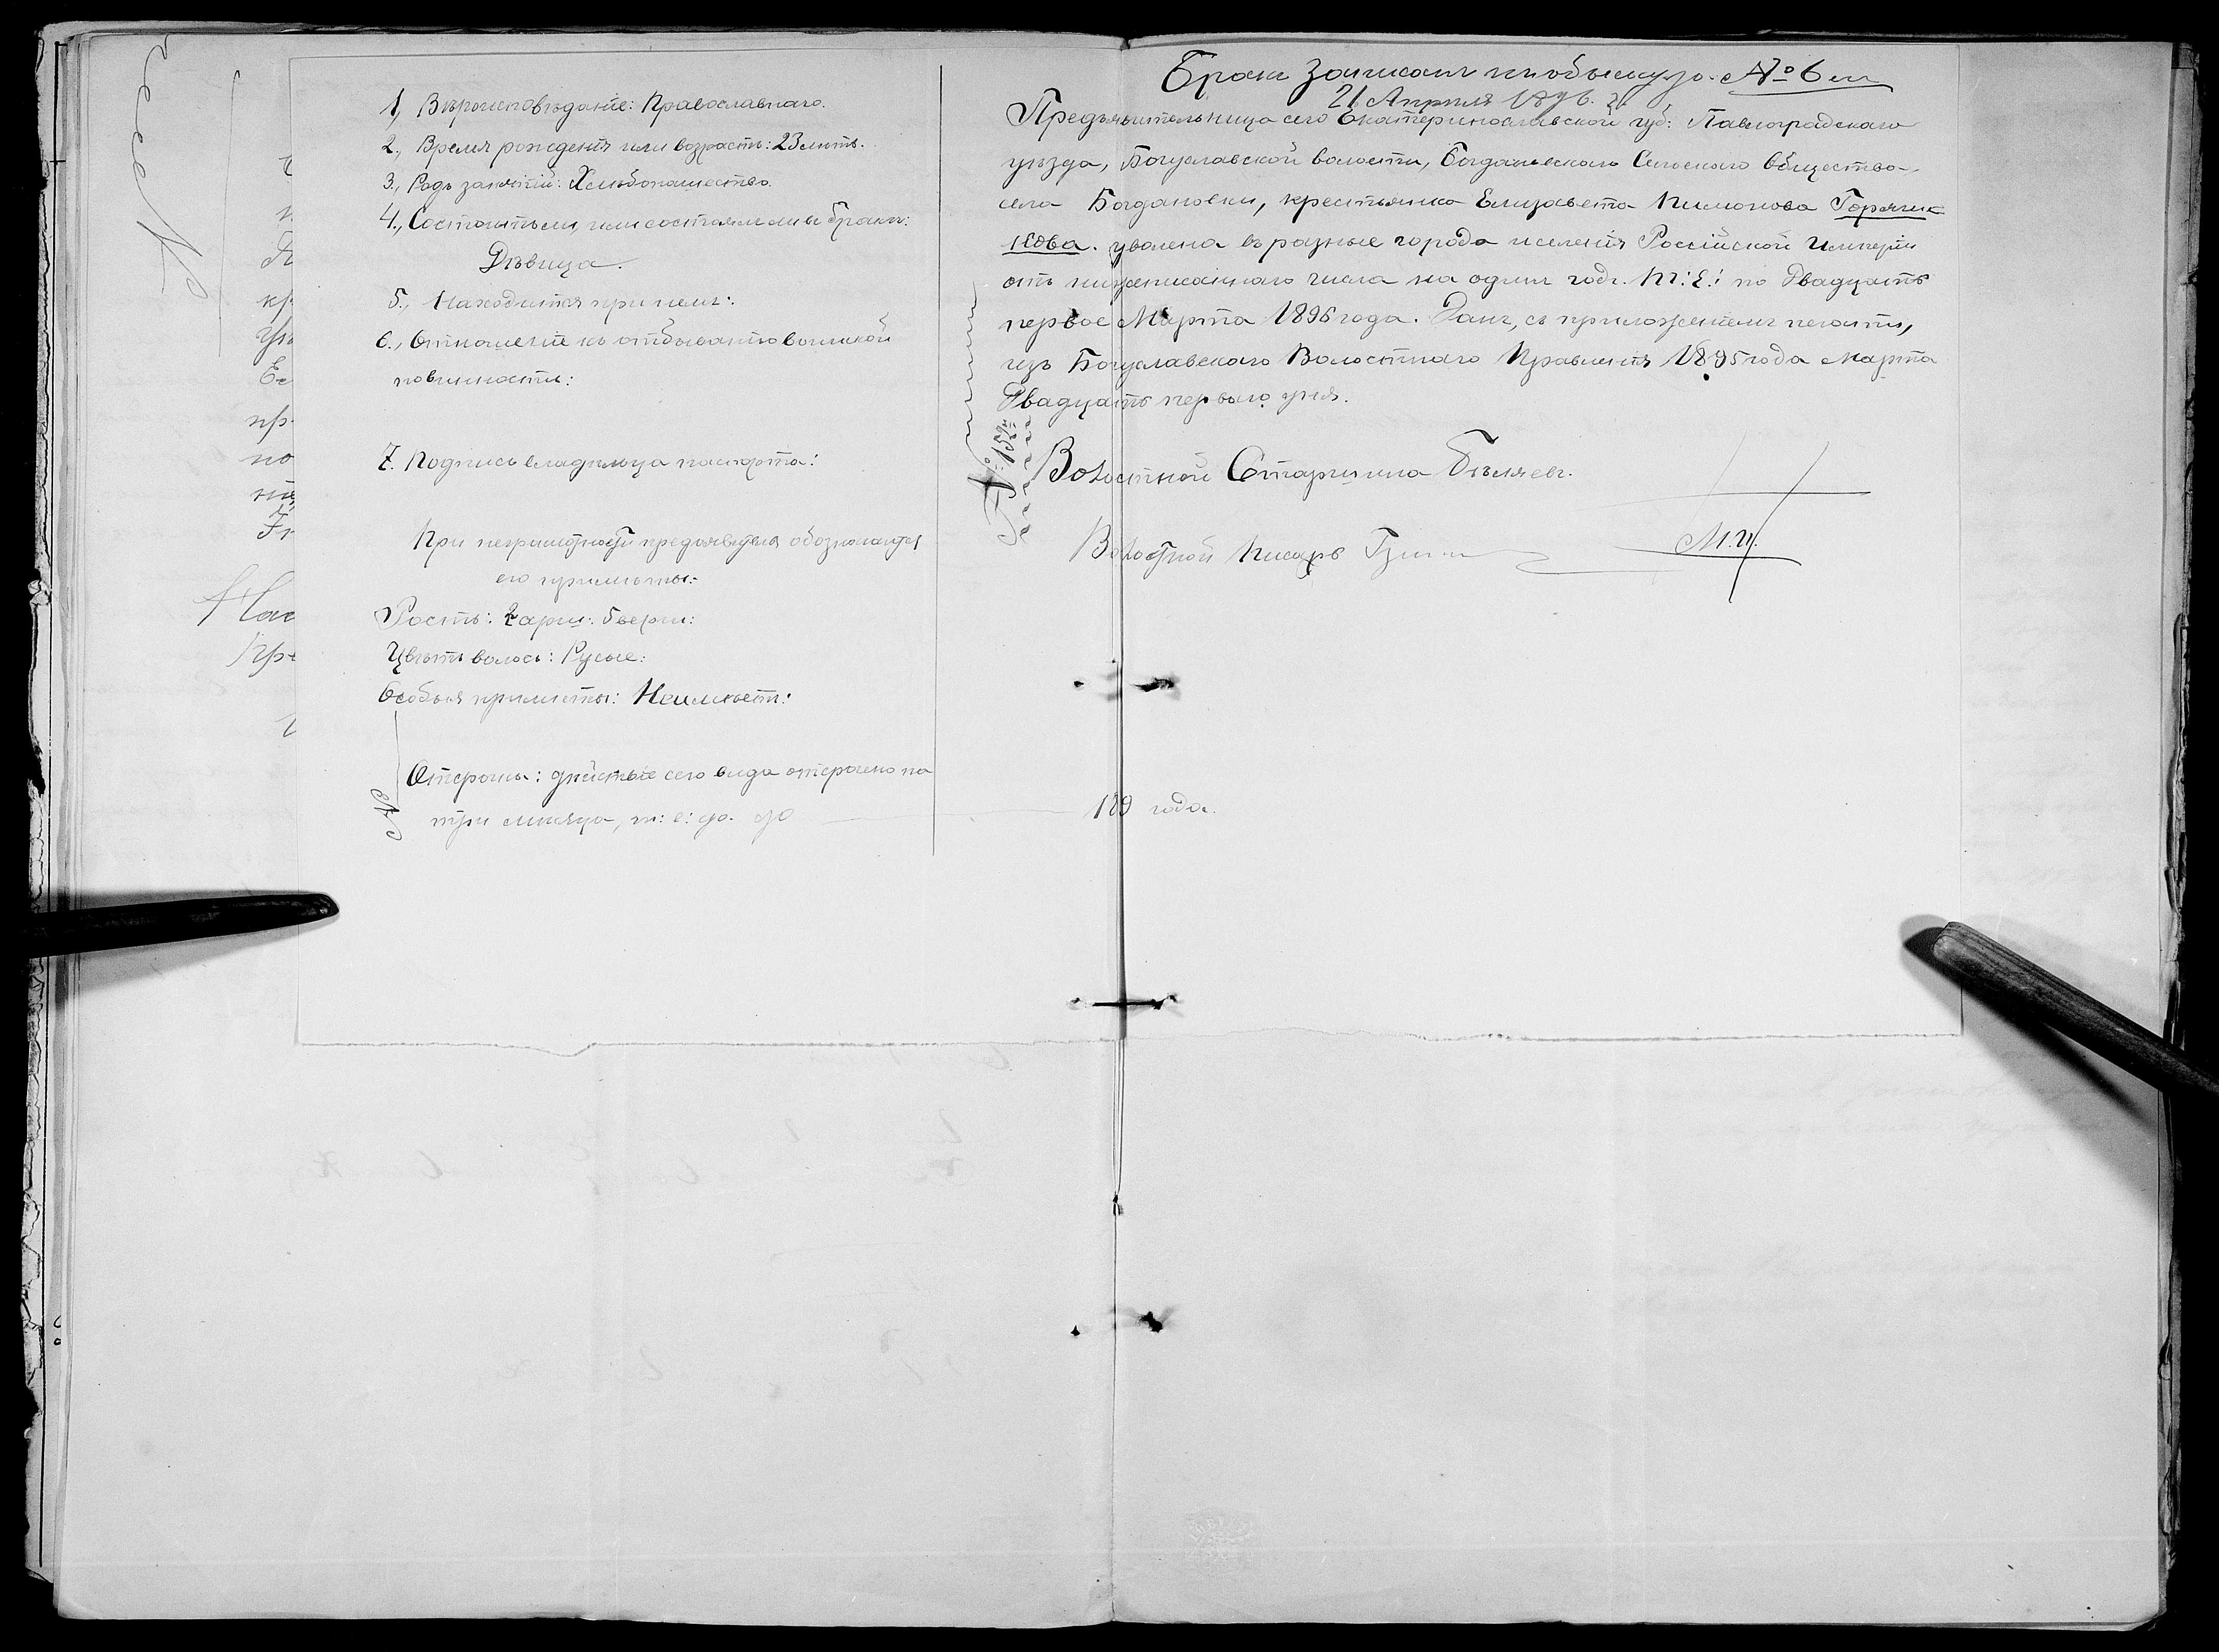 1, Вѣроисповѣданіе: Православнаго.
2., Время рожденія или возрастъ: 23 лѣтъ.
3., Родъ занятій: Хлѣбопашество.
4., Состоитъ ли, или состояла ли въ бракѣ:
Дѣвица.
5., Находится при немъ:
6., Отношеніе къ отбыванію воинской
повинности:
7. Подпись владѣльца паспорта:
При неграмотности предъявителя обозначаются
его примѣты:
Ростъ: 2 арш: 5 верш:
Цвѣтъ волосъ: Русые:
Особыя примѣты: Неимѣетъ:
Отсрочки: дѣйствіе сего вида отсрочено на
три мѣсяца, т: е: до
189 года.
№
Бракъ записанъ по обыску за № 6 мъ
21 Апрѣля 1896 г.
Предъявительница сего Екатеринославской губ: Павлоградскаго
уѣзда, Богуславской волости, Богдановскаго Сельскаго Общества
села Богдановки, крестьянка Елизавета Пимонова Горяник
увалена въ разные города и селенія Россійской Имперіи
отъ нижеписаннаго числа на одинъ годъ. Т: Е: по Двадцать
первое Марта 1896 года. Данъ, съ приложеніемъ печати,
изъ Богуславскаго Волостнаго Правленія 1895 года Марта
Двадцать перваго дня.
№ 152
Волостной Старшина Бѣляевъ.
Волостной Писарь
М.П.